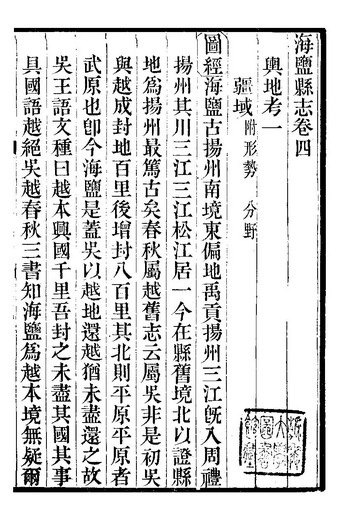 海鹽縣志卷四
輿地考一
疆域 附形勢 分野
圖經海鹽古揚州南境東偏地禹貢揚州三江旣入周禮
揚州其川三江三江松江居一今在縣舊境北以證縣
地爲揚州最篤古矣春秋屬越舊志云屬吳非是初吳
與越成封地百里後增封八百里其北則平原平原者
武原也卽今海鹽是蓋吳以越地還越猶未盡還之故
吳王語文種曰越本興國千里吾封之未盡其國其事
具國語越絕吳越春秋三書知海鹽爲越本境無疑爾